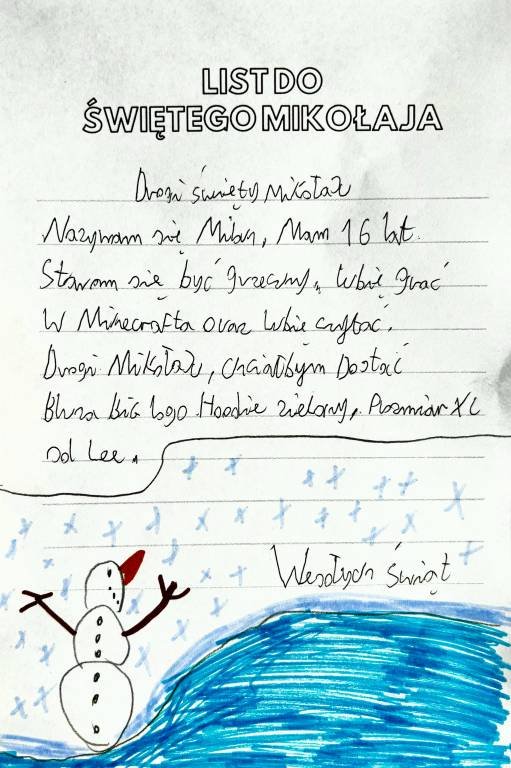 LIST DO
ŚWIĘTEGO MIKOŁAJA
Drogi święty Mikołaju
Nazywam się Milan, Mam 16 lat.
Staram się być grzeczny, lubię grać
W Minecrafta oraz lubię czytać.
Drogi Mikołaju, chciałbym Dostać
Bluza Big Logo Hoodie zielony, Rozmiar XL
od Lee.
Wesołych Świąt